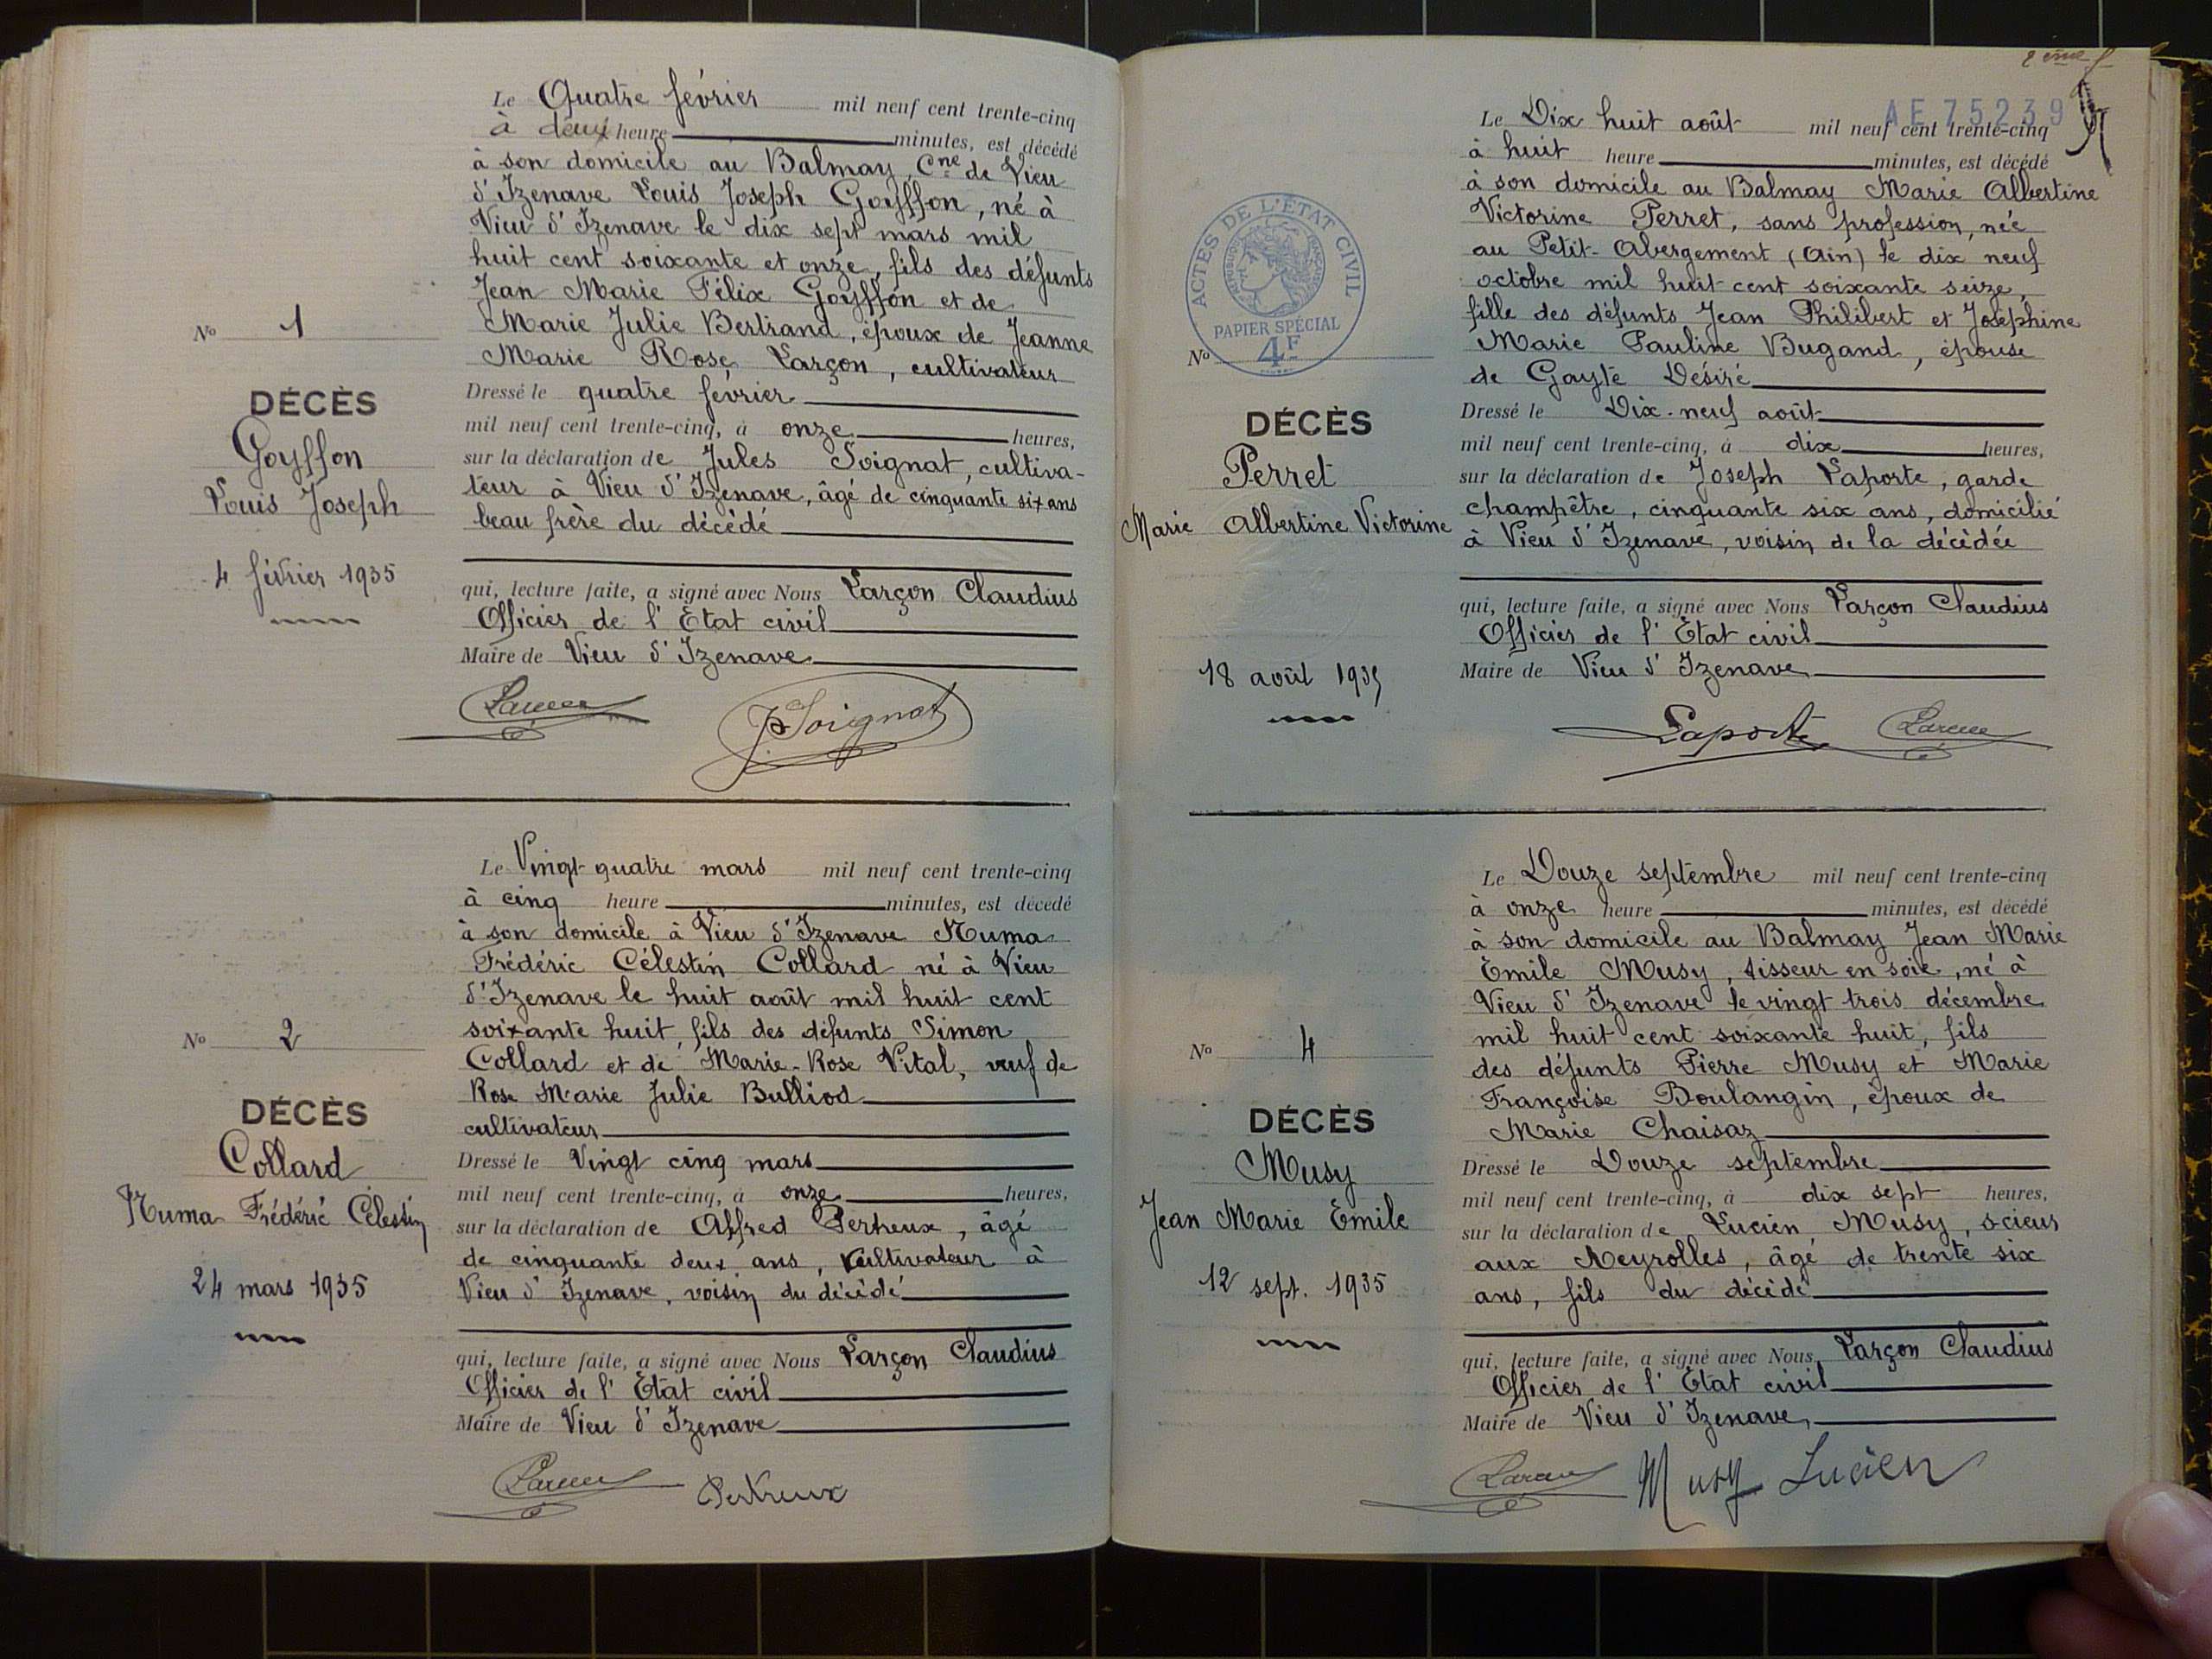 Le Quatre février mil neuf cent trente-cinq
à deux heure minutes, est décédé
à son domicile au Balmay, Cne de Vieu
d'Izenave Louis Joseph Goyffon, né à
Vieu d'Izenave le dix sept mars mil
huit cent soixante et onze, fils des défunts
Jean Marie Félix Goyffon et de
Marie Julie Bertrand, époux de Jeanne
Marie Rose Larçon, cultivateur
Dressé le quatre février
mil neuf cent trente-cinq, à onze heures,
sur la déclaration de Jules Soignat, cultiva-
teur à Vieu d'Izenave, âgé de cinquante six ans
beau frère du décédé
qui, lecture faite, a signé avec Nous Larçon Claudius
Officier de l'Etat civil
Maire de Vieu d'Izenave
J Soignat
No 1
DÉCÈS
Goyffon
Louis Joseph
4 février 1935
Le Vingt-quatre mars mil neuf cent trente-cinq
à cinq heure minutes, est décédé
à son domicile à Vieu d'Izenave Numa
Frédéric Célestin Collard né à Vieu
d'Izenave le huit août mil huit cent
soixante huit, fils des défunts Simon
Collard et de Marie-Rose Vital, veuf de
Rose Marie Julie Bulliod
cultivateur
Dressé le Vingt cinq mars
mil neuf cent trente-cinq, à onze heures,
sur la déclaration de Alfred Perheux, âgé
de cinquante deux ans, cultivateur à
Vieu d'Izenave, voisin du décédé
qui, lecture faite, a signé avec Nous Larçon Claudius
Officier de l'Etat civil
Maire de Vieu d'Izenave
No 2
DÉCÈS
Collard
Numa Frédéric Célestin
24 mars 1935
2ème f
AE 75239
Le Dix huit août mil neuf cent trente-cinq
à huit heure minutes, est décédé
à son domicile au Balmay Marie Albertine
Victorine Perret, sans profession, née
au Petit-Abergement (Ain) le dix neuf
octobre mil huit-cent soixante seize,
fille des défunts Jean Philibert et Joséphine
Marie Pauline Bugand, épouse
de Gayte Désiré
Dressé le Dix-neuf août
mil neuf cent trente-cinq, à dix heures,
sur la déclaration de Joseph Laporte, garde
champêtre, cinquante six ans, domicilié
à Vieu d'Izenave, voisin de la décédée
qui, lecture faite, a signé avec Nous Larçon Claudius
Officier de l'Etat civil
Maire de Vieu d'Izenave
Laporte
ACTES DE L'ÉTAT CIVIL
PAPIER SPÉCIAL
4F
No
DÉCÈS
Perret
Marie Albertine Victorine
18 août 1935
Le Douze septembre mil neuf cent trente-cinq
à onze heure minutes, est décédé
à son domicile au Balmay Jean Marie
Emile Musy, tisseur en soie, né à
Vieu d'Izenave le vingt trois décembre
mil huit cent soixante huit, fils
des défunts Pierre Musy et Marie
Françoise Boulangin, époux de
Marie Chaisaz
Dressé le Douze septembre
mil neuf cent trente-cinq, à dix sept heures,
sur la déclaration de Lucien Musy, scieur
aux Neyrolles, âgé de trente six
ans, fils du décédé
qui, lecture faite, a signé avec Nous Larçon Claudius
Officier de l'Etat civil
Maire de Vieu d'Izenave
Musy Lucien
No 4
DÉCÈS
Musy
Jean Marie Emile
12 sept. 1935